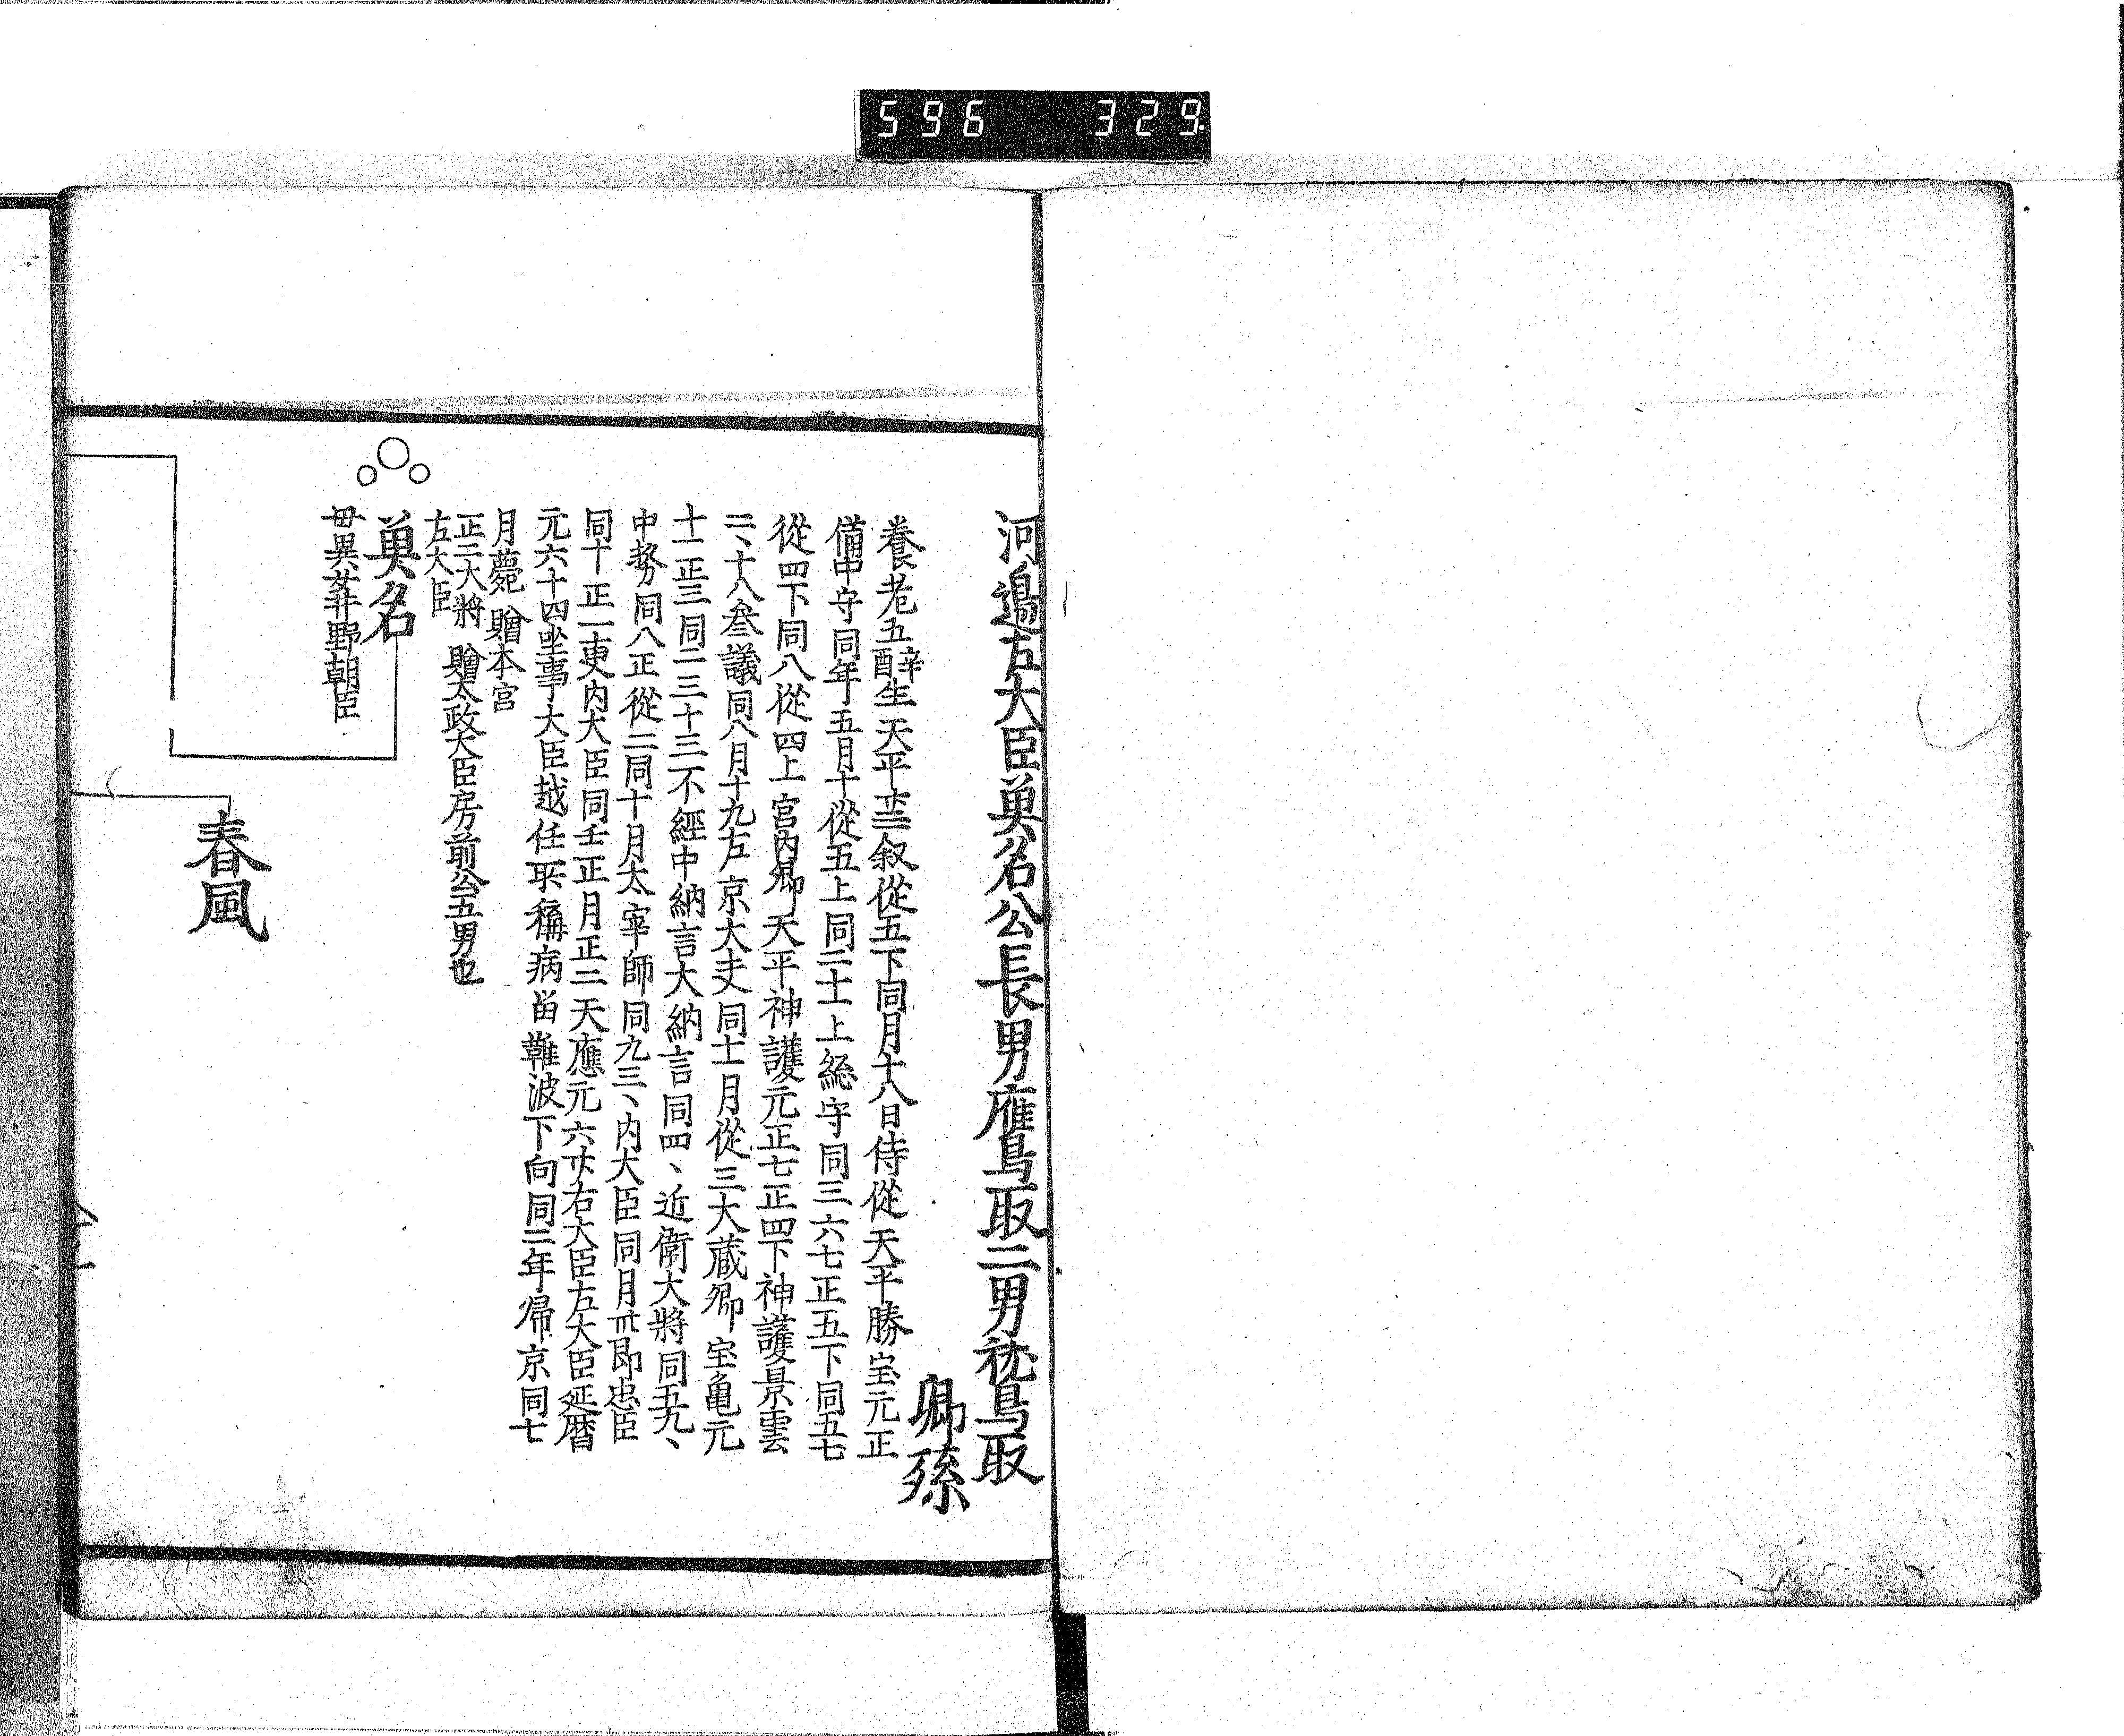 596 329
河邉左大臣魚名公長男鷹鳥取二男祗鳥取
卿孫
養老五辛酉生天平廿叙從五下同月十八日侍從天平勝宝元正
備中守同年五月十從五上同二十上総守同三六七正五下同五七
從四下同八從四上宮内卿天平神護元正七正四下神護景雲
二、十八叅議同八月十九左京大夫同十一月從三大蔵卿宝亀元
十一正三同二三十三不經中納言大納言同四、近衛大將同五九、
中務同八正從二同十月太宰師同九三、内大臣同月卅即忠臣
同十正一吏内大臣同壬正月正二天應元六廿右大臣左大臣延暦
元六十四坐事大臣越任取稱病畄難波下向同二年帰京同七
月薨贈本宮
正二大將贈太政大臣房前公五男也
左大臣
魚名
毋異母野朝臣
春風